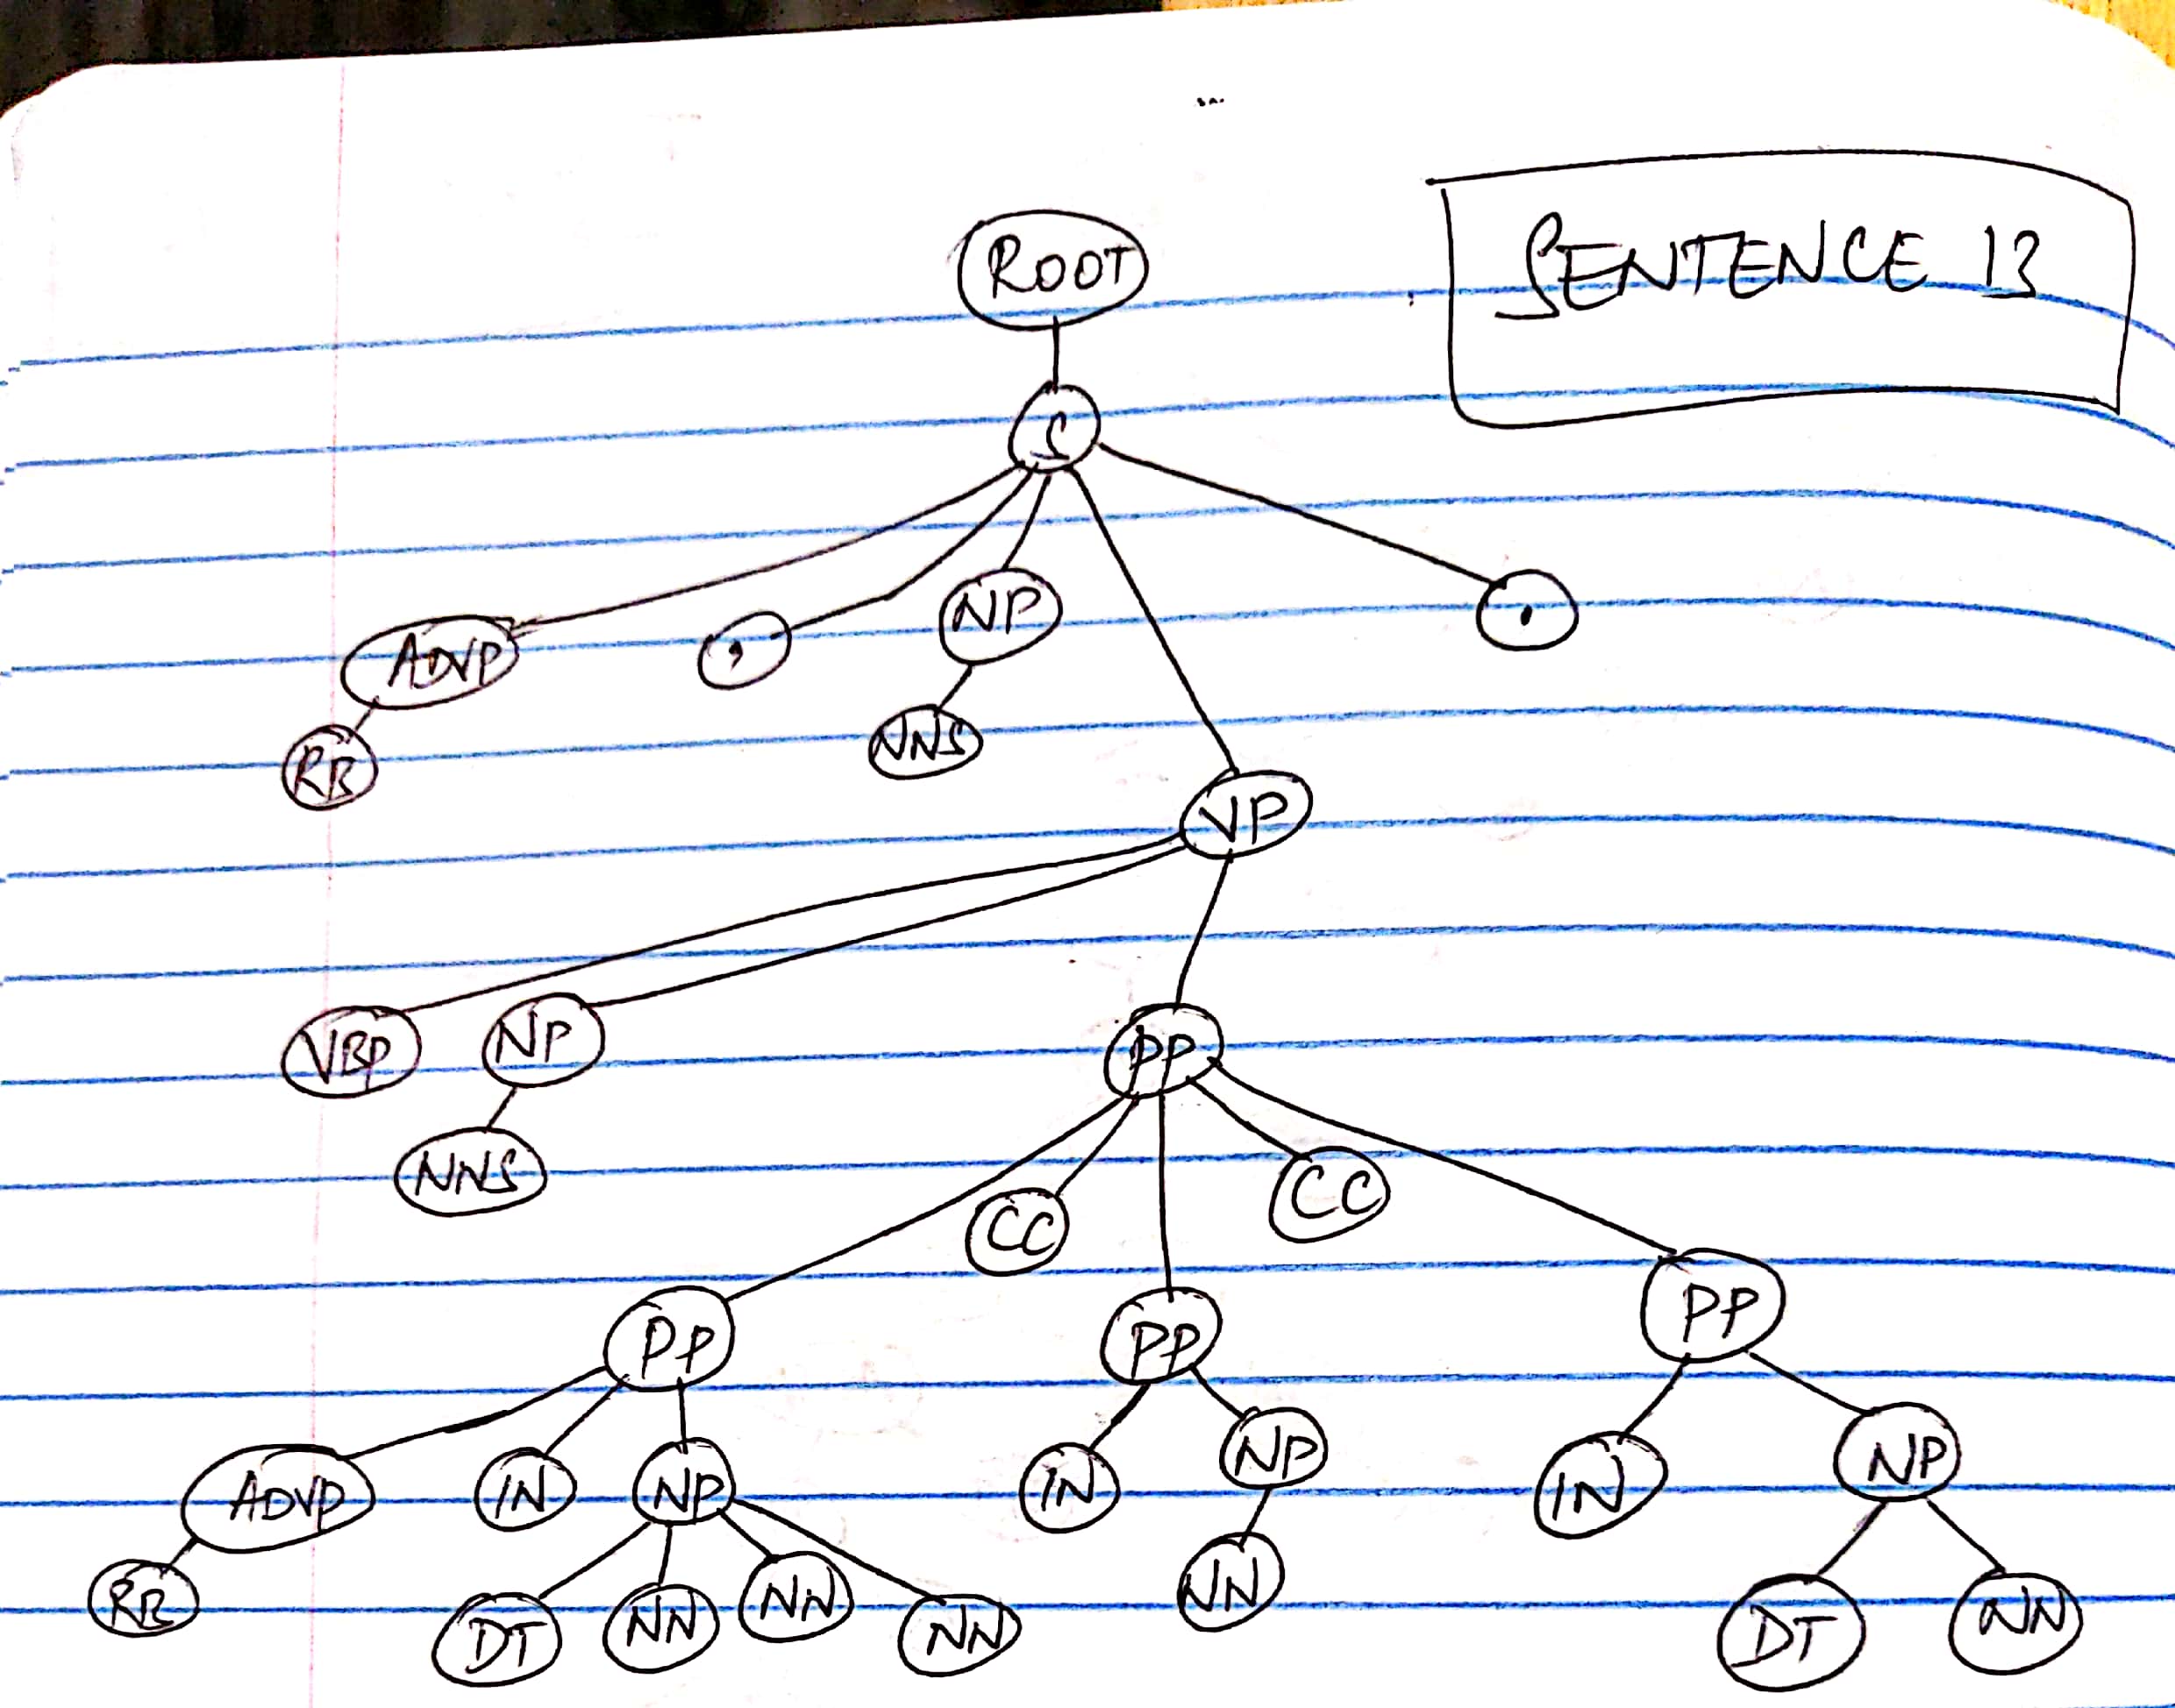 SENTENCE 13
ROOT
S
ADVP , NP .
RB NNS
VP
VBP NP PP
NNS CC CC
PP PP PP
ADVP IN NP IN NP IN NP
RB DT NN NN NN NN DT NN